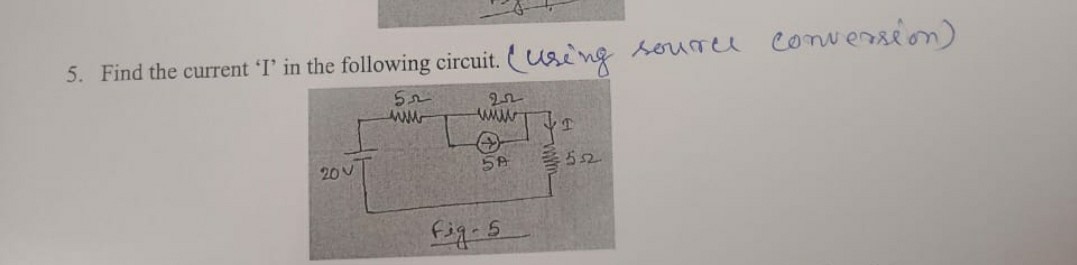 5. Find the current 'I' in the following circuit. (using source conversion)
5Ω 2Ω
I
5A 5Ω
20V
Fig-5